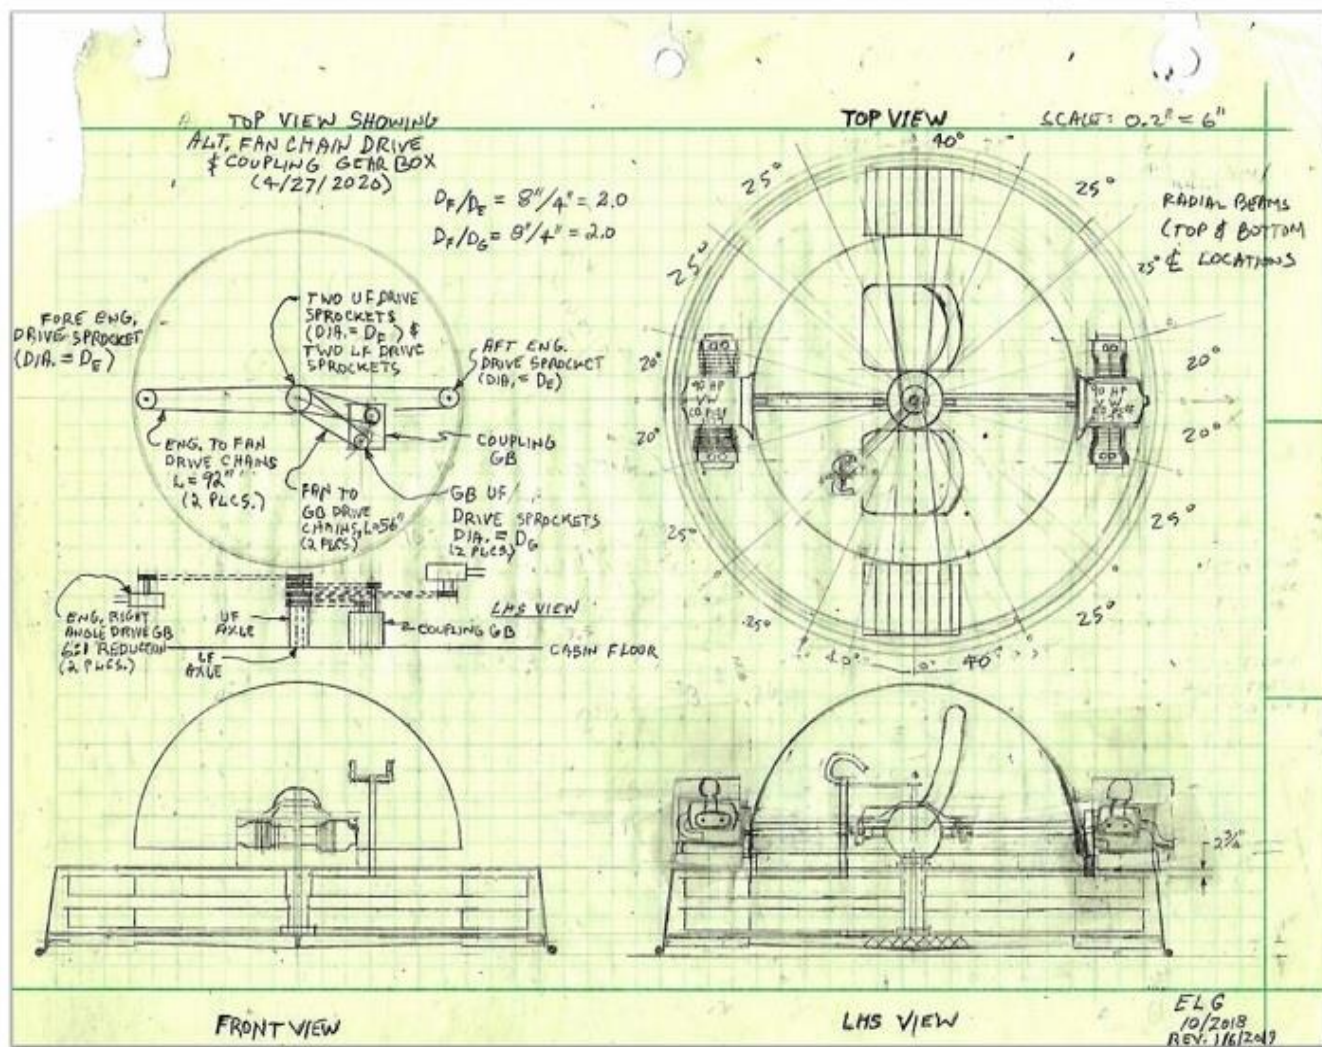 TOP VIEW SHOWING
ALT. FAN CHAIN DRIVE
& COUPLING GEAR BOX
(4/27/2020)
DF/DE = 8"/4" = 2.0
DF/DG = 8"/4" = 2.0
FORE ENG.
DRIVE SPROCKET
(DIA. = DE)
TWO UF DRIVE
SPROCKETS
(DIA. = DF) &
TWO LF DRIVE
SPROCKETS
AFT ENG.
DRIVE SPROCKET
(DIA. = DE)
ENG. TO FAN
DRIVE CHAINS
L = 92"
(2 PLCS.)
FAN TO
GB DRIVE
CHAINS, L=56"
(2 PLCS)
COUPLING
GB
GB UF/
DRIVE SPROCKETS
DIA. = DG
(2 PLCS)
LHS VIEW
ENG. RIGHT
ANGLE DRIVE GB
6:1 REDUCTION
(2 PLCS.)
UF
AXLE
LF
AXLE
COUPLING GB
CABIN FLOOR
TOP VIEW
SCALE: 0.2" = 6"
RADIAL BEAMS
(TOP & BOTTOM
℄ LOCATIONS
40°
25°
25°
25°
25°
20°
20°
20°
20°
90 HP
VW
90 HP
VW
25°
25°
25°
25°
40°
40°
2 3/4"
FRONT VIEW
LHS VIEW
ELG
10/2018
REV. 1/6/2019